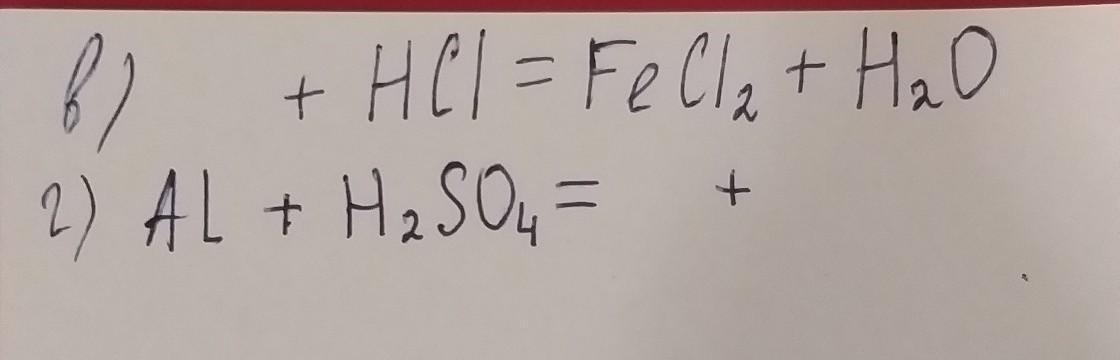 в) + HCl = FeCl₂ + H₂O
г) Al + H₂SO₄ = +